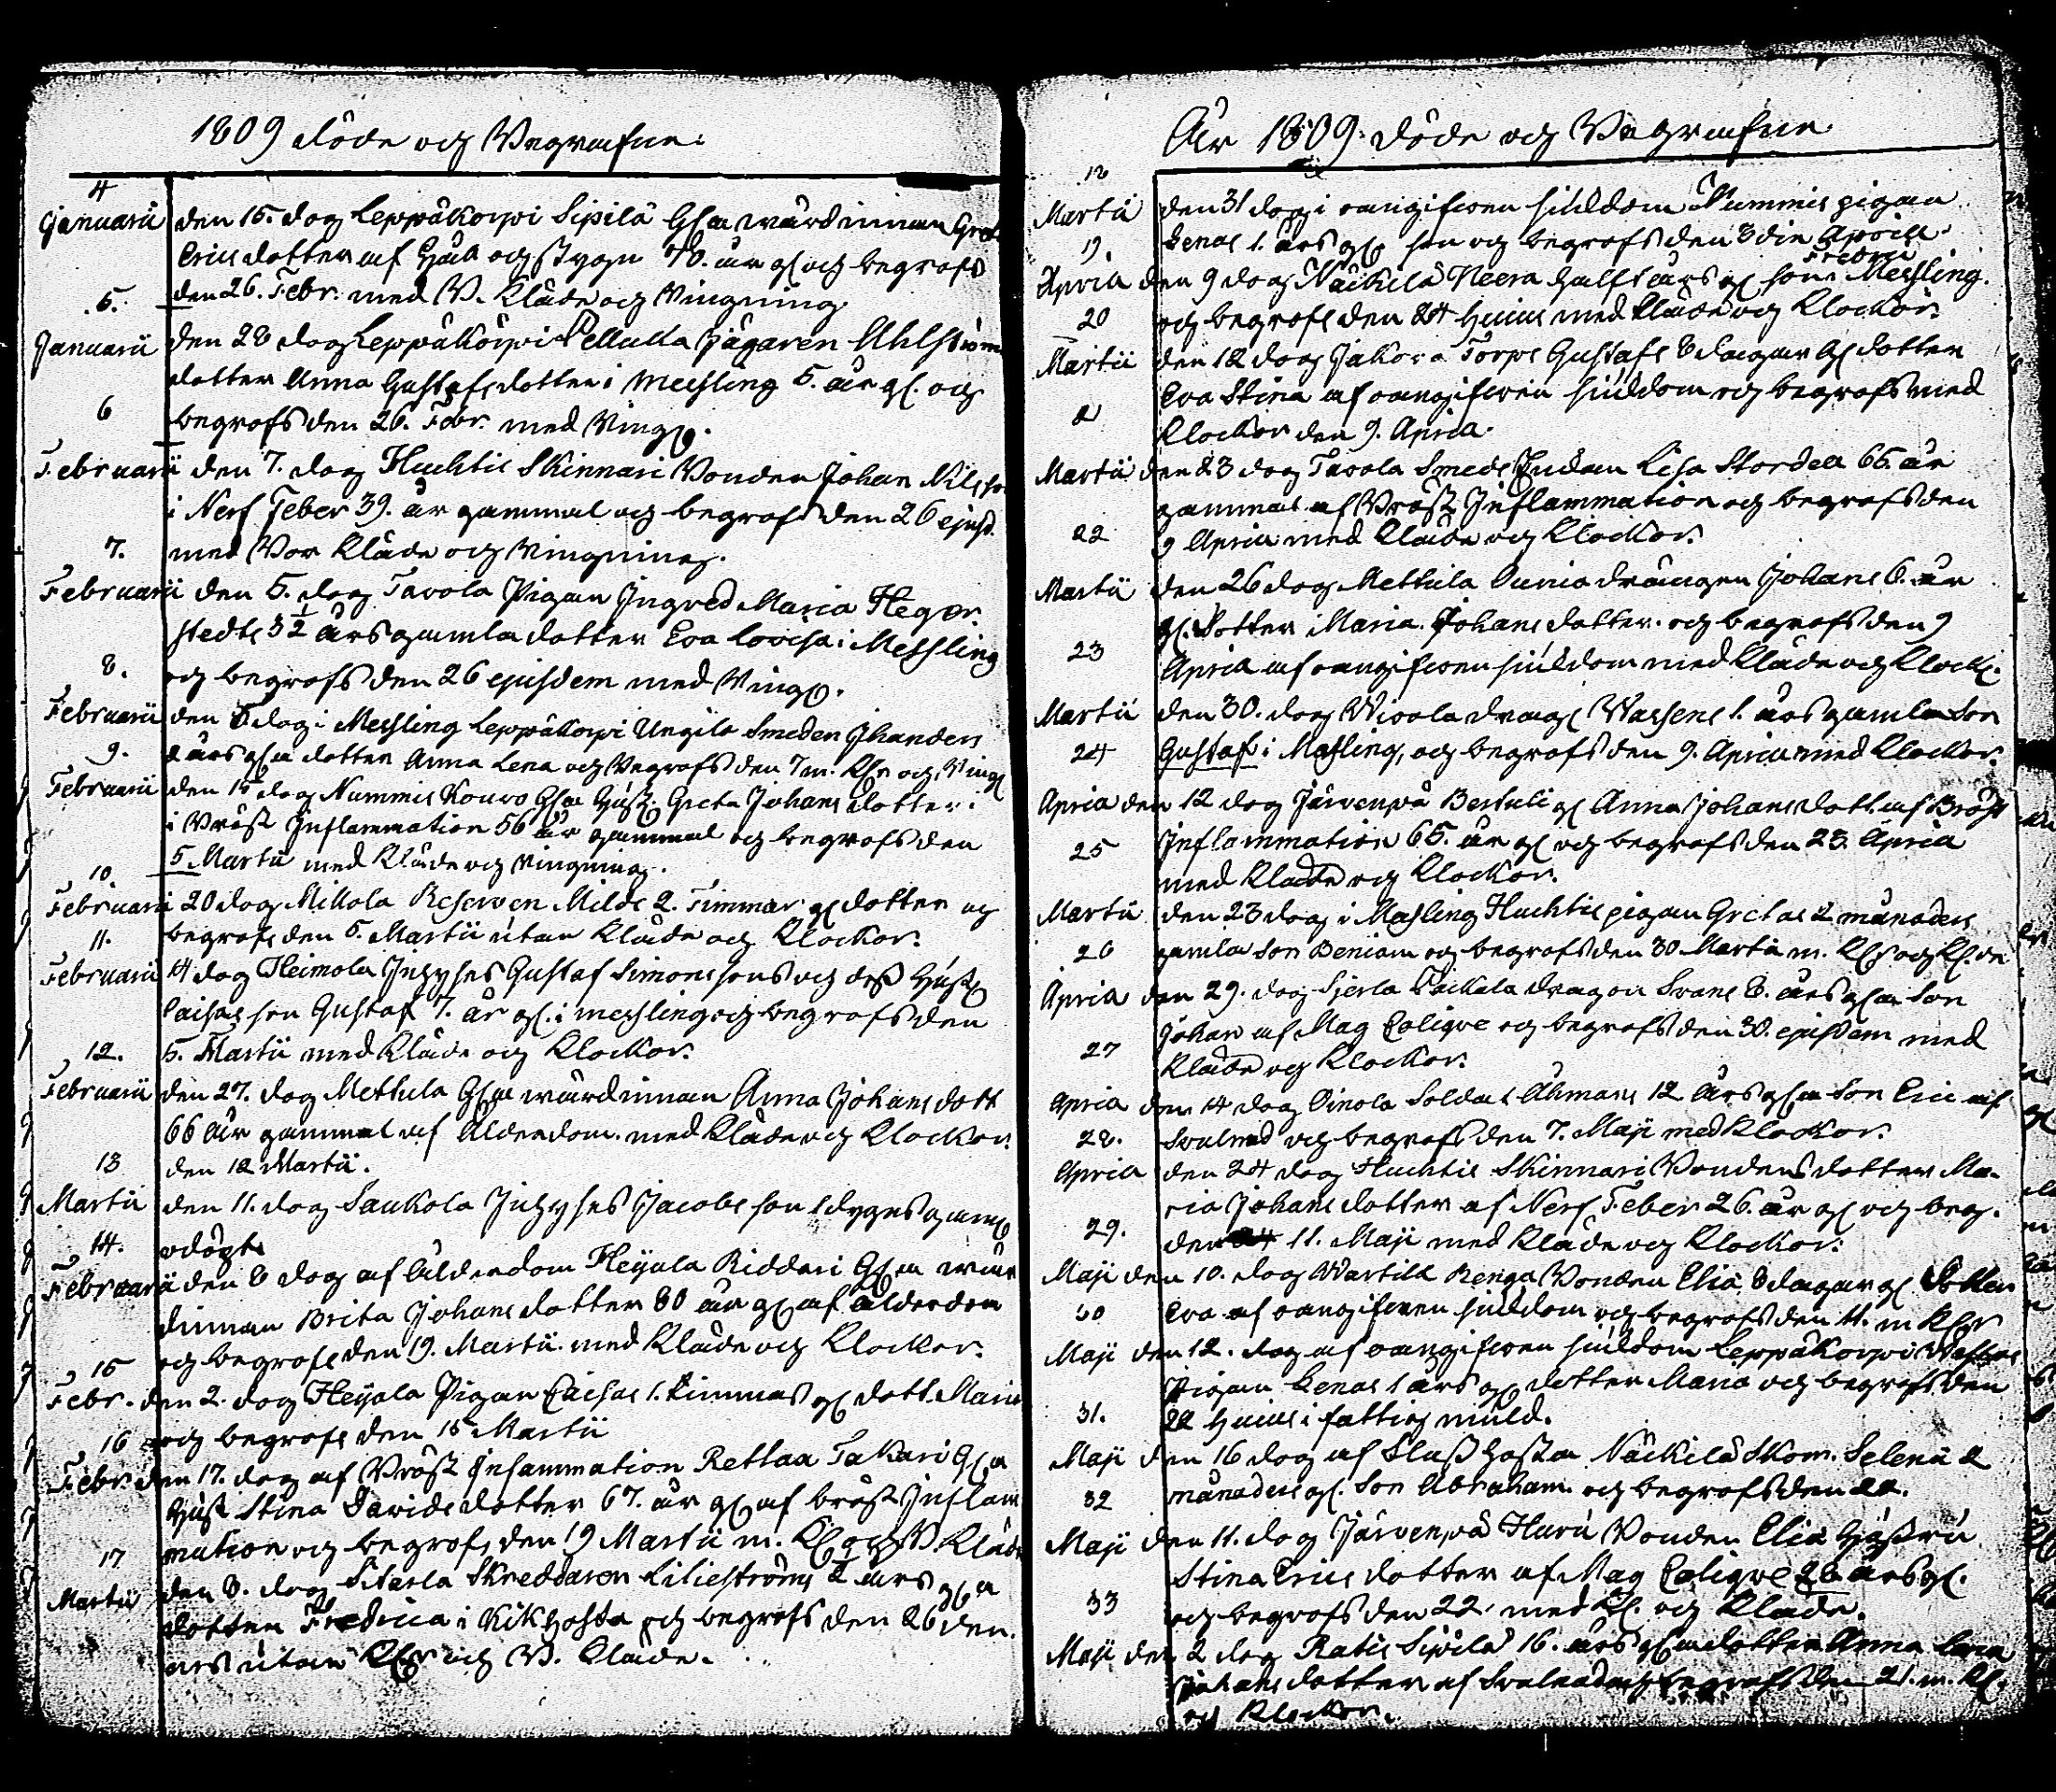 1809 döde och Begrafne.
4
Januarii den 15. dag Leppäkorpi Sipilä Gla wärdinnan Greta
Ericsdotter af Håll och styng 70. år gl och begrofs
den 26. Febr. med B. Kläde och Ringning
5.
Januarii den 28 dag Leppäkorpi Pellaka Jägaren Ahlström
dotter Anna Gustafsdotter i Messling 5. år gl. och
6
begrofs den 26. Febr. med Ringg.
Februarii den 7. dag Huchtis Skinnari Bonden Johan Nilsson
i Nerf Feber 39. år gammal och begrofs den 26 ejusd.
7. med Bår Kläde och Ringning.
Februarii den 5. dag Tavola Pigan Ingred Maria Heger
stedts 3½ års gamla dotter Eva Lovisa i Messling
8. och begrofs den 26 ejusdem med Ringg.
Februarii den dag i Messling Leppäkorpi Ungila Smeden
9. års gla dotter Anna Lena och Begrofs den 7 m. Klr och Ringg
Februarii den 15 dag Nummis Kouvo Gla Hust. Greta Johans dotter
i Bröst Inflammation 56 år gammal och begrofs den
5 Martii med Kläde och ringning.
10.
Februarii 20 dag Mikola Reserven Milds 2. Timmar gl dotter och
11. begrofs den 5. Martii utan Kläde och Klockor.
Februarii 14 dag Heimola Inhyses Gustaf Simons sons och dess Hustr
Caisas son Gustaf 7. år gl. i messling och begrofs den
12. 5. Martii med Kläde och Klockor.
Februarii den 27. dag Mettula Gla wärdinnan Anna Johans dott
66 år gammal af Ålderdom. med Kläde och Klockor.
13 den 12 Martii.
Martii den 11. dag Saukola Inhyses Jacobs son 1 dygns gamml
14. odögt
Februarii den 6 dag af ålderdom Heijala Ridderi Gla wär
dinnan Brita Johans dotter 80 år gl af ålderdom
och begrofs den 19. Martii med Kläde och Klockor.
15
Febr. den 2. dag Heijala Pigan Caisas 1. timmas gl dott. Maria
16 och begrofs den 15 Martii
Febr. den 17. dag af Bröst Infammation Rettaa Takari Gla
Hust Stina Davids dotter 67. år gl af bröst Inflam
mation och begrofs den 19 Martii m. Kl och B Kläde
17
Martii den 8. dag Sierla Skreddaren Lilieströms ½ års gla
dotter Fredrica i Kikhosta och begrofs den 26 den.
utan Klr och B. Kläde.
År 1809. döde och Begrafne
18
Martii den 31 dag i oangifven siukdom Nummis pigan
19. Lenas 1. års gl son och begrofs den 3 die Aprill.
Fredric
Aprill den 9 dag Näckilä Heera half års gl son Messling.
20 och begrofs den 24 Hujus med Kläde och Klockor.
Martii den 12 dag Jakova Torps Gustafs 8 dagar gl dotter
Eva Stina af oangifven siukdom och begrofs med
21 Klockor den 9. Aprill.
Martii den 23 dag Tavola Smeds Enckan Lisa Stordell 65 år
gammal af Bröst Inflammation och begrofs den
22 9 Aprill med Kläde och Klockor.
Martii den 26 dag Mettula Ounio drängen Johans 6. år
gl. Dotter Maria Johans dotter. och begrofs den 9
23 Aprill af oangifven siukdom med Kläde och Klock.
Martii den 30. dag Wivola drags Wassens 1. års gamla son
24 Gustaf i Messling, och begrofs den 9. Aprill med Klockor.
Aprill den 12 dag Järvenpä Bertuli gl Anna Johans dott. af Bröst
25 Inflammation 65. år gl och begrofs den 23. Aprill
med Kläde och Klockor.
Martii den 23 dag i Messling Huchtis pigan Gretas 2 månaders
26 gamla son Beniam och begrofs den 30 Martii m. Klr och Kl.de
Aprill den 29. dag Sjerla Täckälä dragon Svans 8. års gla son
Johan af Mag Colique och begrofs den 30. ejusdem med
27 Kläde och Klockor.
Aprill den 14 dag Oinola Soldat Åhmans 12 års gla son Eric af
28. Svulnad och begrofs den 7. Maji med Klockor.
Aprill den 24 dag Huchtis Skinnari Bondens dotter Ma-
ria Johans dotter af Nerf Feber 26. år gl och beg.
29. den 11. Maji med Kläde och Klockor.
Maji den 10. dag Wartila Renga Bonden Eliæ 8 dagar gl Dotter
30 Eva af oangifven siukdom och begrofs den 11. m Klr
Maji den 12. dag af oangifven siukdom Leppäkorpi
Pigan Lenas 1 års gl dotter Maria och begrofs den
31. 22 Hujus i fattig muld.
Maji den 16 dag af Slag hosta Näckilä Skom. Selenii 2
32 månaders gl. son Abraham och begrofs den 22.
Maji den 11. dag Järvenpä Haru Bonden Eliæ Hustru
Stina Erics dotter af Mag Colique 28 års gl.
33 och begrofs den 22. med Kl. och Kläde.
Maji den 2 dag Ratis Sipilä 16. års gla dotter Anna Lena
Johans dotter af Svulnad och begrofs den 21. m. Kl.
och Klockor.